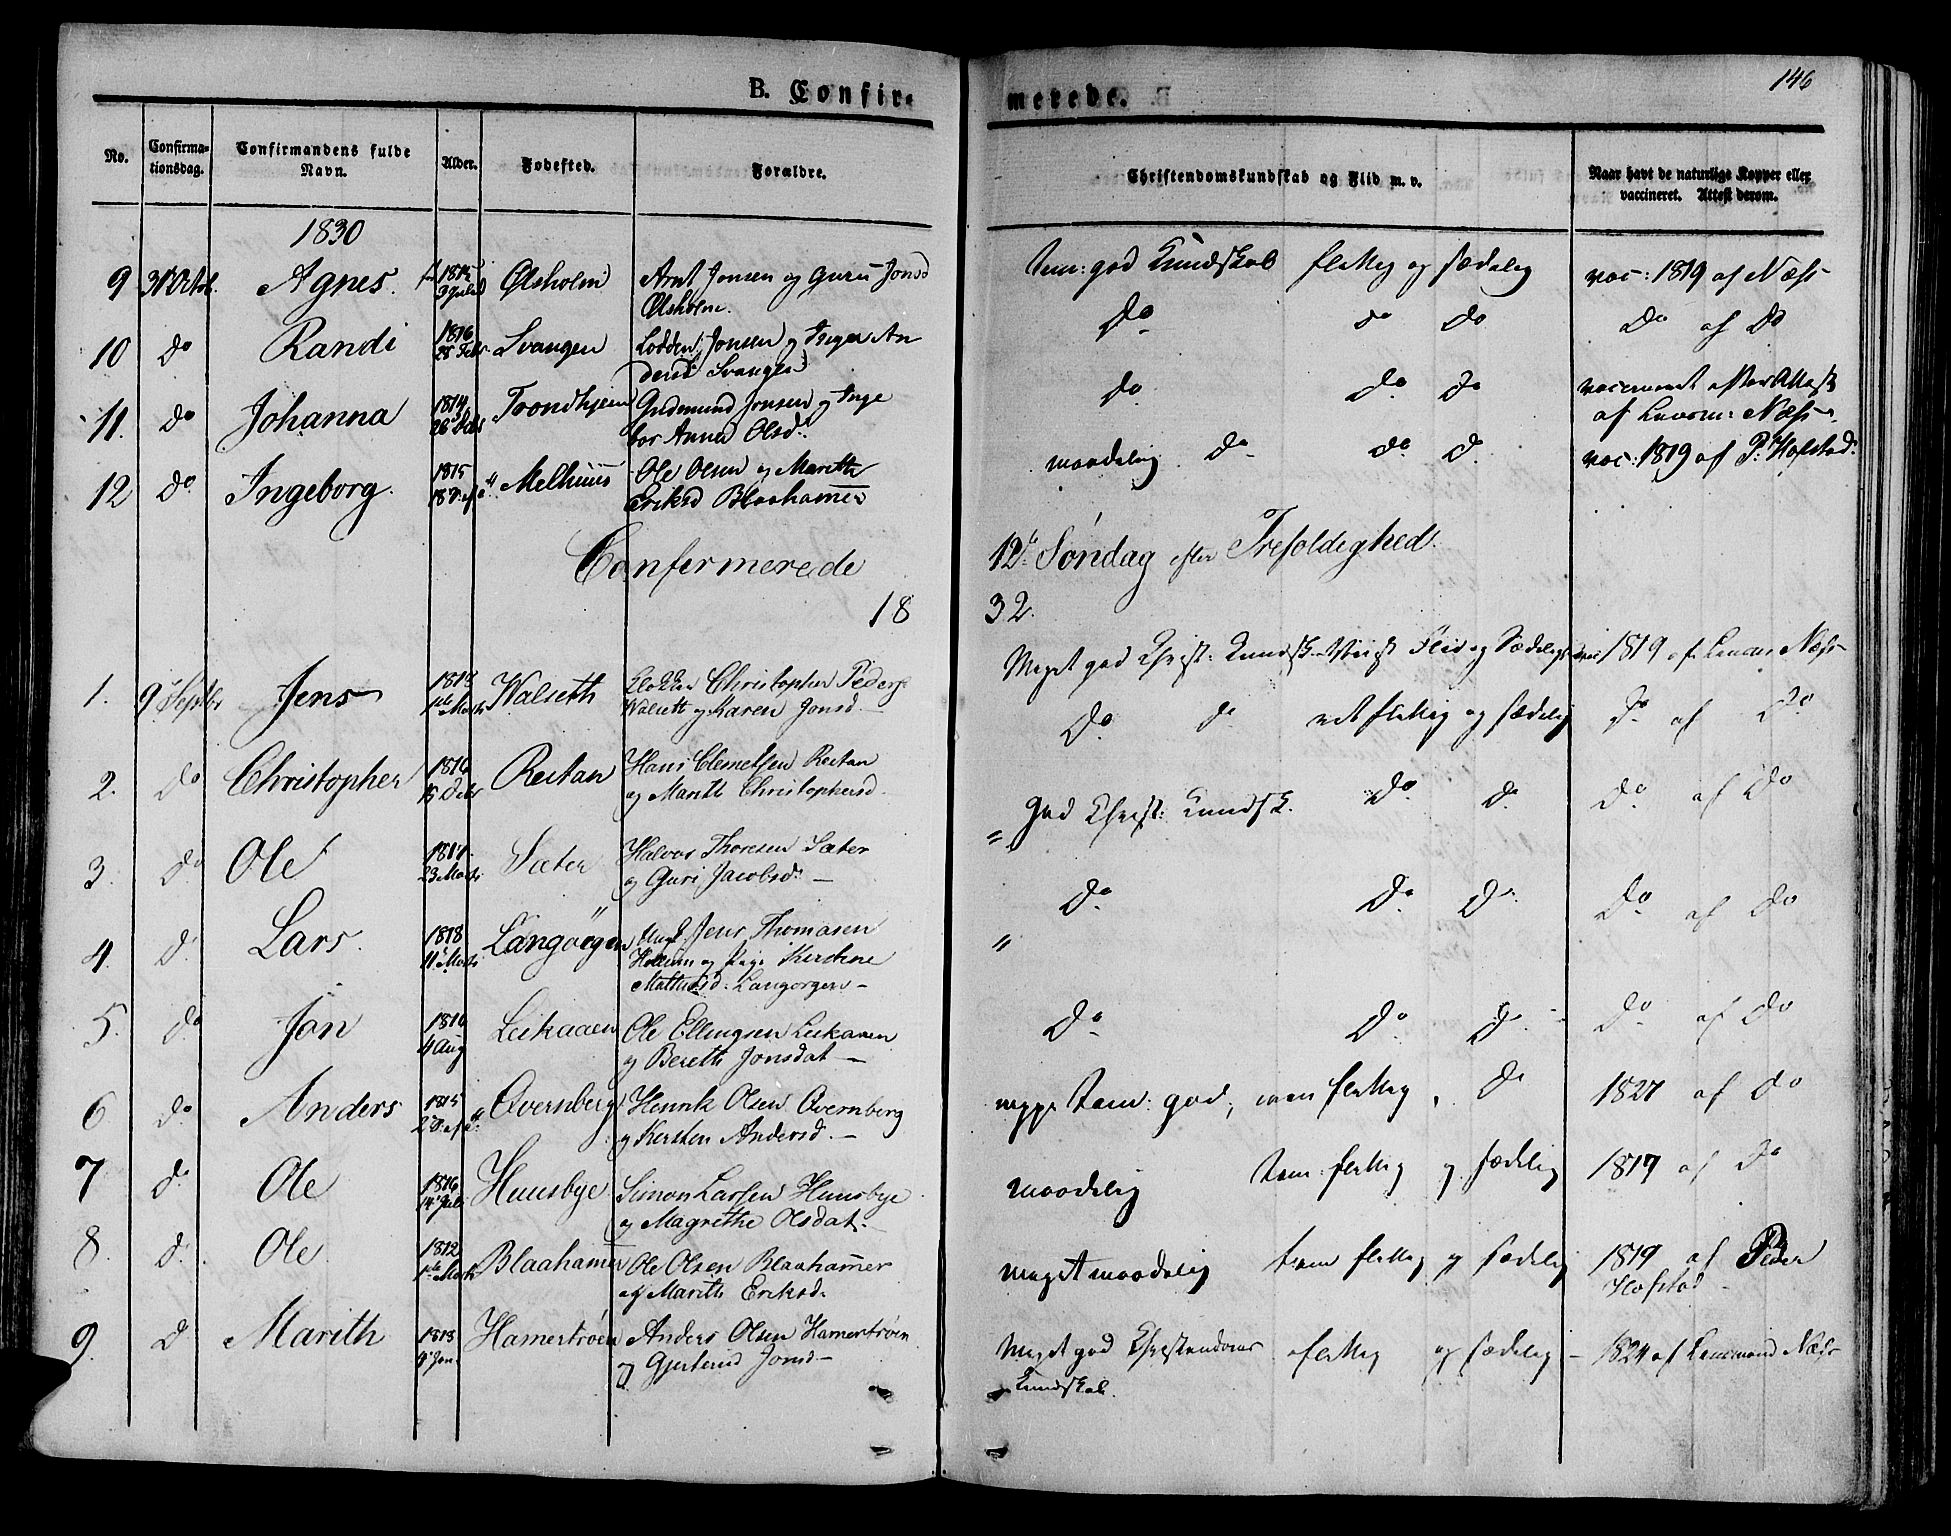 146
B. Confir-
merede.
No.
Confirma-
tionsdag.
Confirmandens fulde
Navn.
Alder.
Fødested.
Forældre.
Christendomskundskab og Flid m. v.
Naar havt de naturlige Kopper eller
vaccineret. Attest derom.
1830
9 31 Octob. Agnes. 1815 Ølsholm Arnt Jonsen og Guru Jonsd
Ølsholm.
tem: god Kundskab flittig og sædelig vac: 1819 af Næss
10 do Randi 1816 28 Febr Svangen Lodden Jonsen og An
dersd Svangen
Do do do Do af Do
11. do Johanna 1814 26 Febr Trondhjem Gudmund Jonsen og Inge
bor Anna Olsd.
do do do vaccineret efter Attest
af Lensm: Næss
12 do Ingeborg. 1815 Melhuus Ole Olsen og Marith
Eriksd Blaahamer
maadelig do do d. vac: 1819 af P. Hofstad.
Confermerede
12te Søndag efter Trefoldighed.
18
32.
1. 9 Septbr Jens 1818 1ste Marts Walseth Klokker Christopher Peders
Walseth og Karen Jonsd.
Meget god Christ: Kundsk. Flid og Sædelig vac 1819 af Lensm Næss
2. do Christopher 1816 15 Debr Reitan Hans Clemetsen Reitan
og Marith Christophersd.
Do do ret flittig og sædelig Do af Do
3. do Ole 1817 23 Marts Sæter Halvor Thoresen Sæter
og Guri Jacobsd.
" God Christ: Kundsk. Do d. Do af Do
4. d. Lars 1818 11 Marts Langørgen Jens Thomasen
og Pige Kirstine
Mathisd. Langørgen
" Do Do D. Do af Do
5. do Jon 1816 4 Aug Leikaaen Ole Ellingsen Leikaaen
og Bereth Jonsdat
Do Do D. Do af Do
6 do Anders 1815 Qvernberg Henrik Olsen Qvernberg
og Kersten Andersd.
neppe tem: god, men flittig, Do 1827 af Do
7 do Ole 1816 14 Juli Huusbye Simon Larsen Huusbye
og Magrethe Olsdat.
maadelig tem: flittig og sædelig 1817 af Do
8. d. Ole 1812 1ste Marts Blaahamer Ole Olsen Blaahamer
og Marith Eriksd.
meget maadelig tem flittig og sædelig 1819 af Peder
Hofstad
9. D Marith 1818 4 Jan. Hamertrøen Anders Olsen Hamertrøen
og Gjertrud Jonsd
Meget god Christendoms flittig og sædelig 1824 af Lensmand Næss
Kundskab.